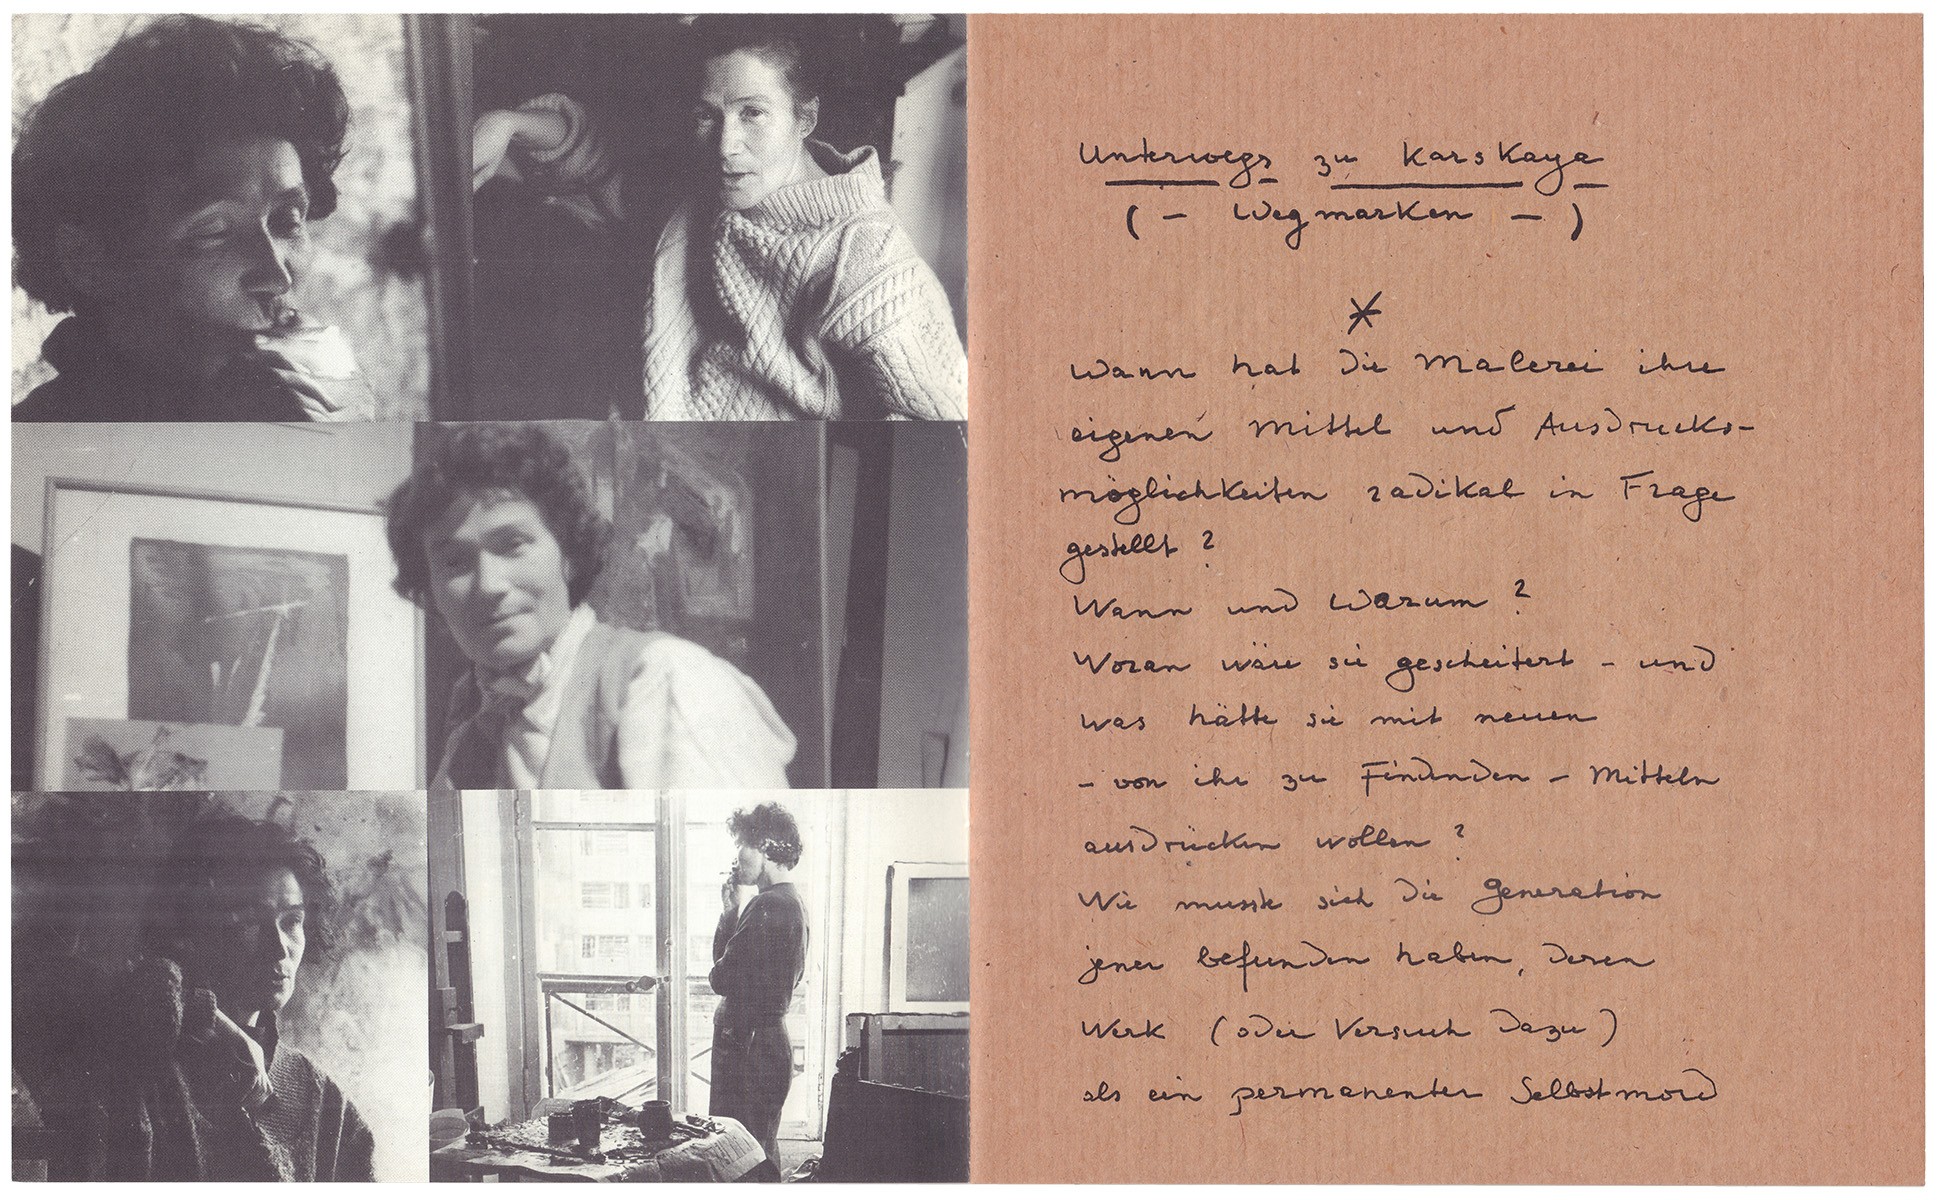 Unterwegs zu Karskaya
(- Wegmarken -)
*
Wann hat die Malerei ihre
eigenen Mittel und Ausdrucks-
möglichkeiten radikal in Frage
gestellt?
Wann und warum?
Woran wäre sie gescheitert - und
was hätte sie mit neuen
- von ihr zu Findenden - Mitteln
ausdrücken wollen?
Wie musste sich die Generation
jener befunden haben, deren
Werk (oder Versuch dazu)
als ein permanenter Selbstmord